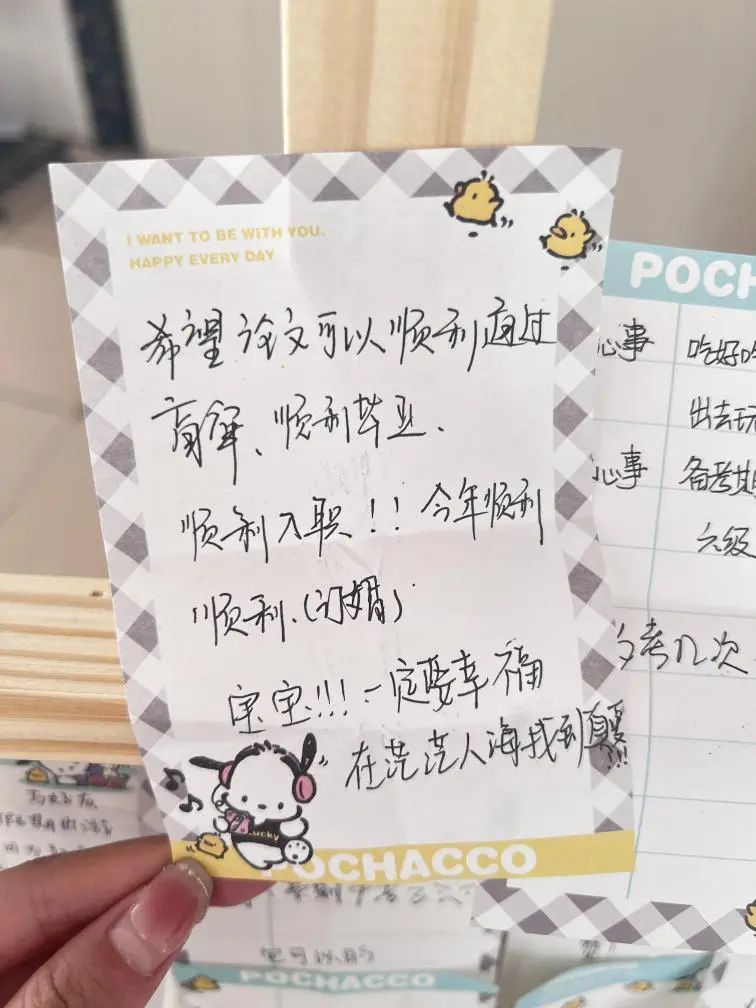 I WANT TO BE WITH YOU.
HAPPY EVERY DAY
希望论文可以顺利通过
盲审、顺利毕业、
顺利入职！！今年顺利
顺利、(订婚)
宝宝!!!一定要幸福
在茫茫人海找到真爱!!!
Lucky
POCHACCO
POCH
心事 吃好吃
出去玩
心事 备考期
六级
考几次
可以的
POCHACCO